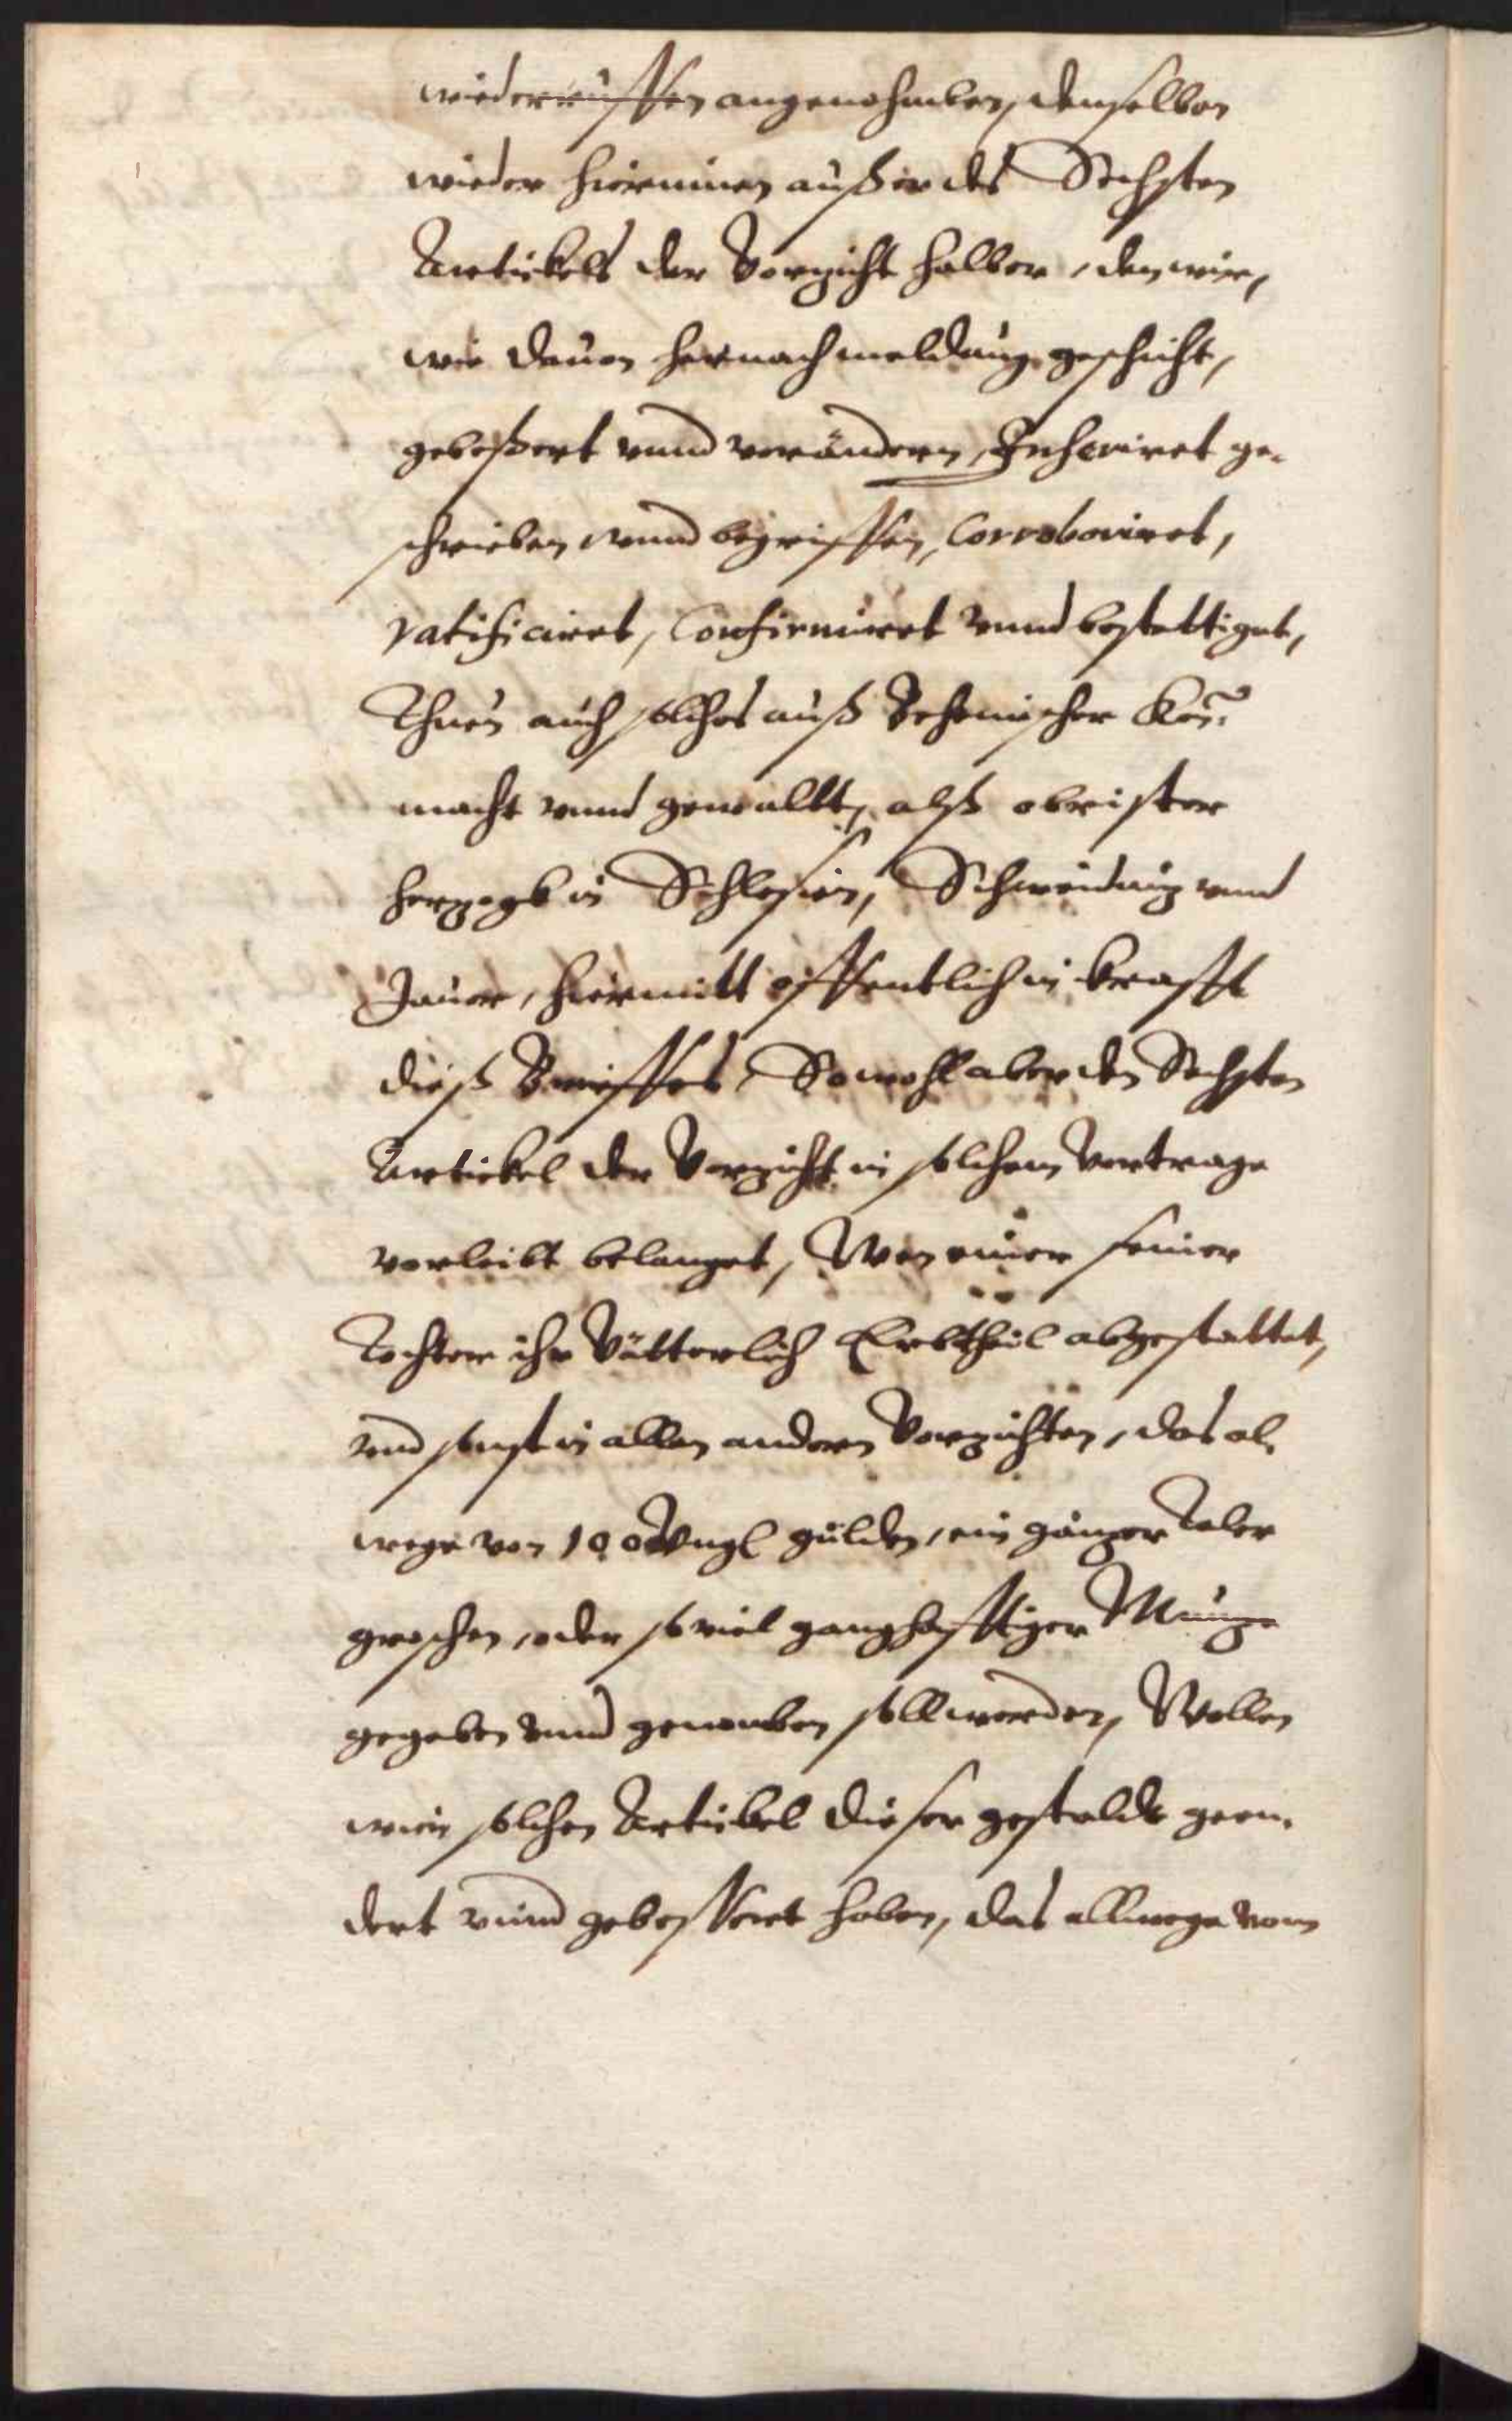 wiederruffen angenohmben, denselben
wieder hiereinen außer des Sechsten
Artickels der Vorzicht halber, den wir,
wie dauon hernach meldung geschicht,
gebeßert vnnd verändern, Inseriret ge-
schrieben vnnd begriffen, Corroboriret,
ratificiret, Confirmiret vnnd bestettiget,
Thuen auch solches auß Behemischer Kön:
macht vnnd gewallt, alß obrister
hertzogk in Schlesien, Schweidnitz vnnd
Jauer, hiermitt öffentlich in krafft
dieß Brieffes, Sowohl aber den Sechsten
Artickel der Vorzicht in solchem Vertrage
vorleibt belanget, Wen einer seiner
Tochter ihr Vätterlich Erbtheil abgestattet,
vnd sonst in allen andern Vorzichten, das al-
wege von 100 Vngl gülden, ein gantzer Taler
groschen, oder so viel ganghafftiger Müntze
gegeben vnnd genomben soll werden, Wollen
wir solchen Artickel dieser gestaldt geen-
dert vnnd gebessert haben, das allwege vom